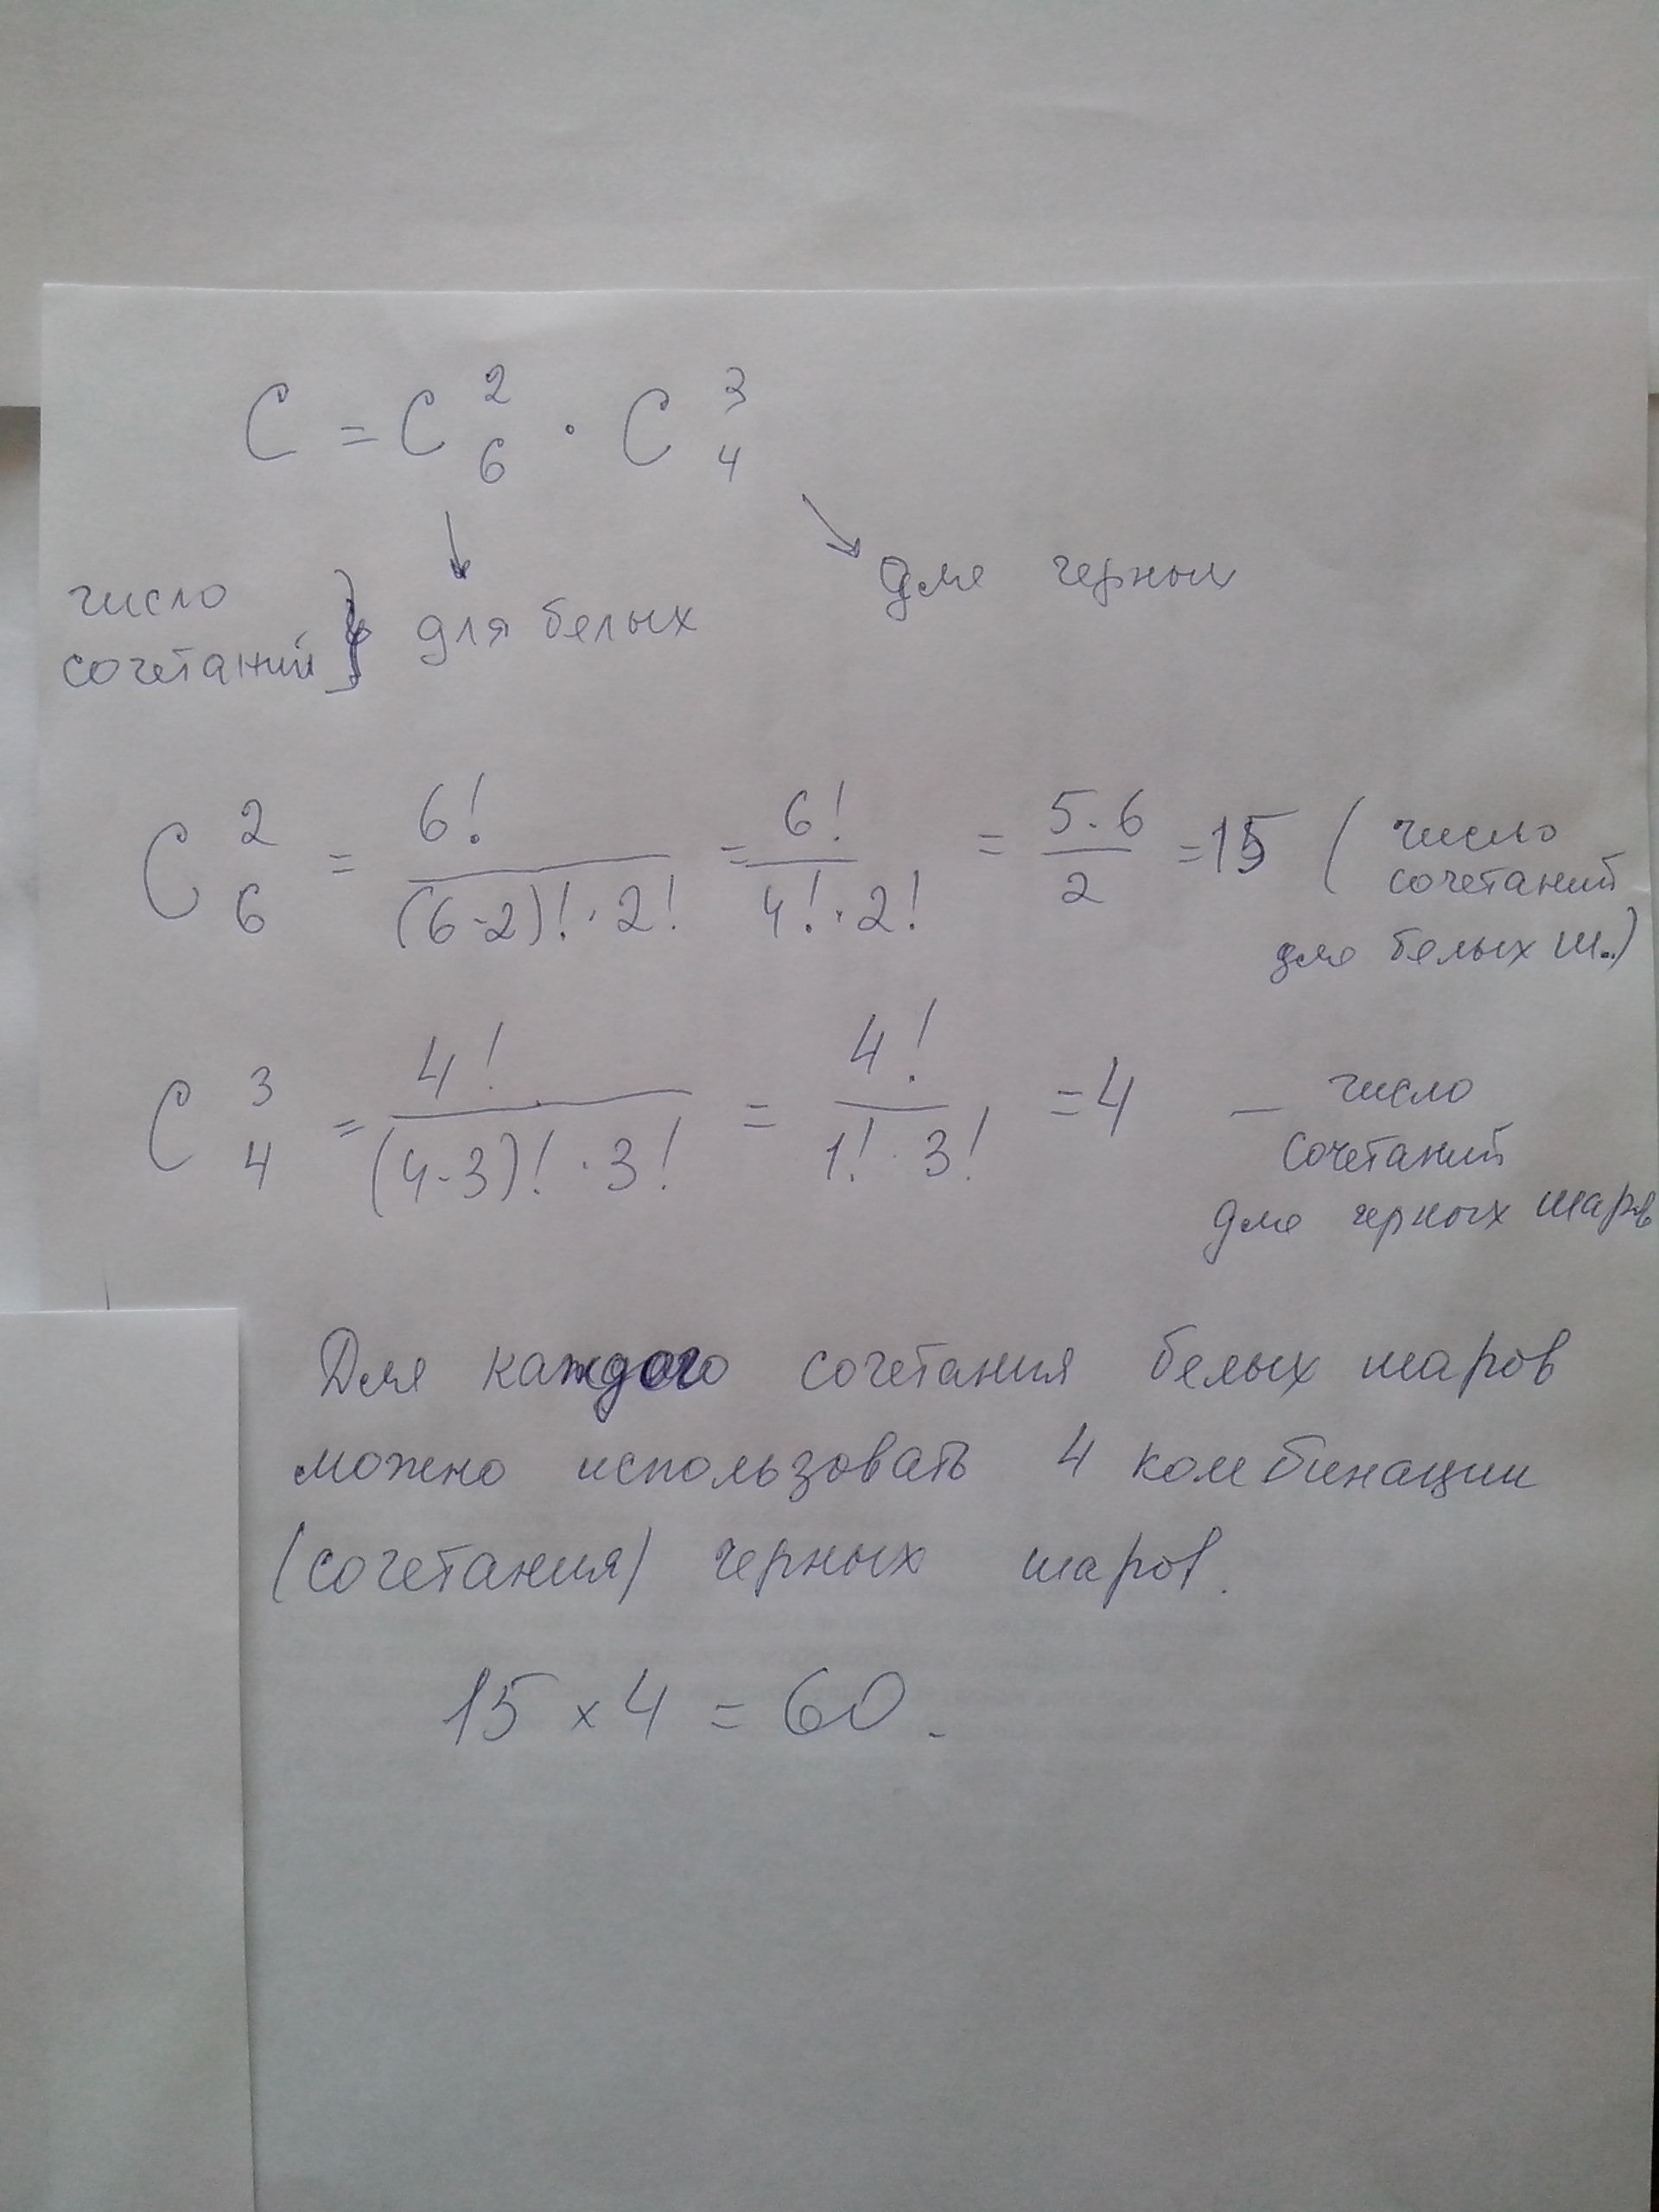 C = C²₆ · C³₄
число
сочетаний } для белых
для черных
C²₆ = 6! / (6-2)! · 2! = 6! / 4! · 2! = 5 · 6 / 2 = 15 ( число
сочетаний
для белых ш.)
C³₄ = 4! / (4-3)! · 3! = 4! / 1! · 3! = 4 — число
сочетаний
для черных шаров
Для каждого сочетания белых шаров
можно использовать 4 комбинации
(сочетания) черных шаров.
15 × 4 = 60.